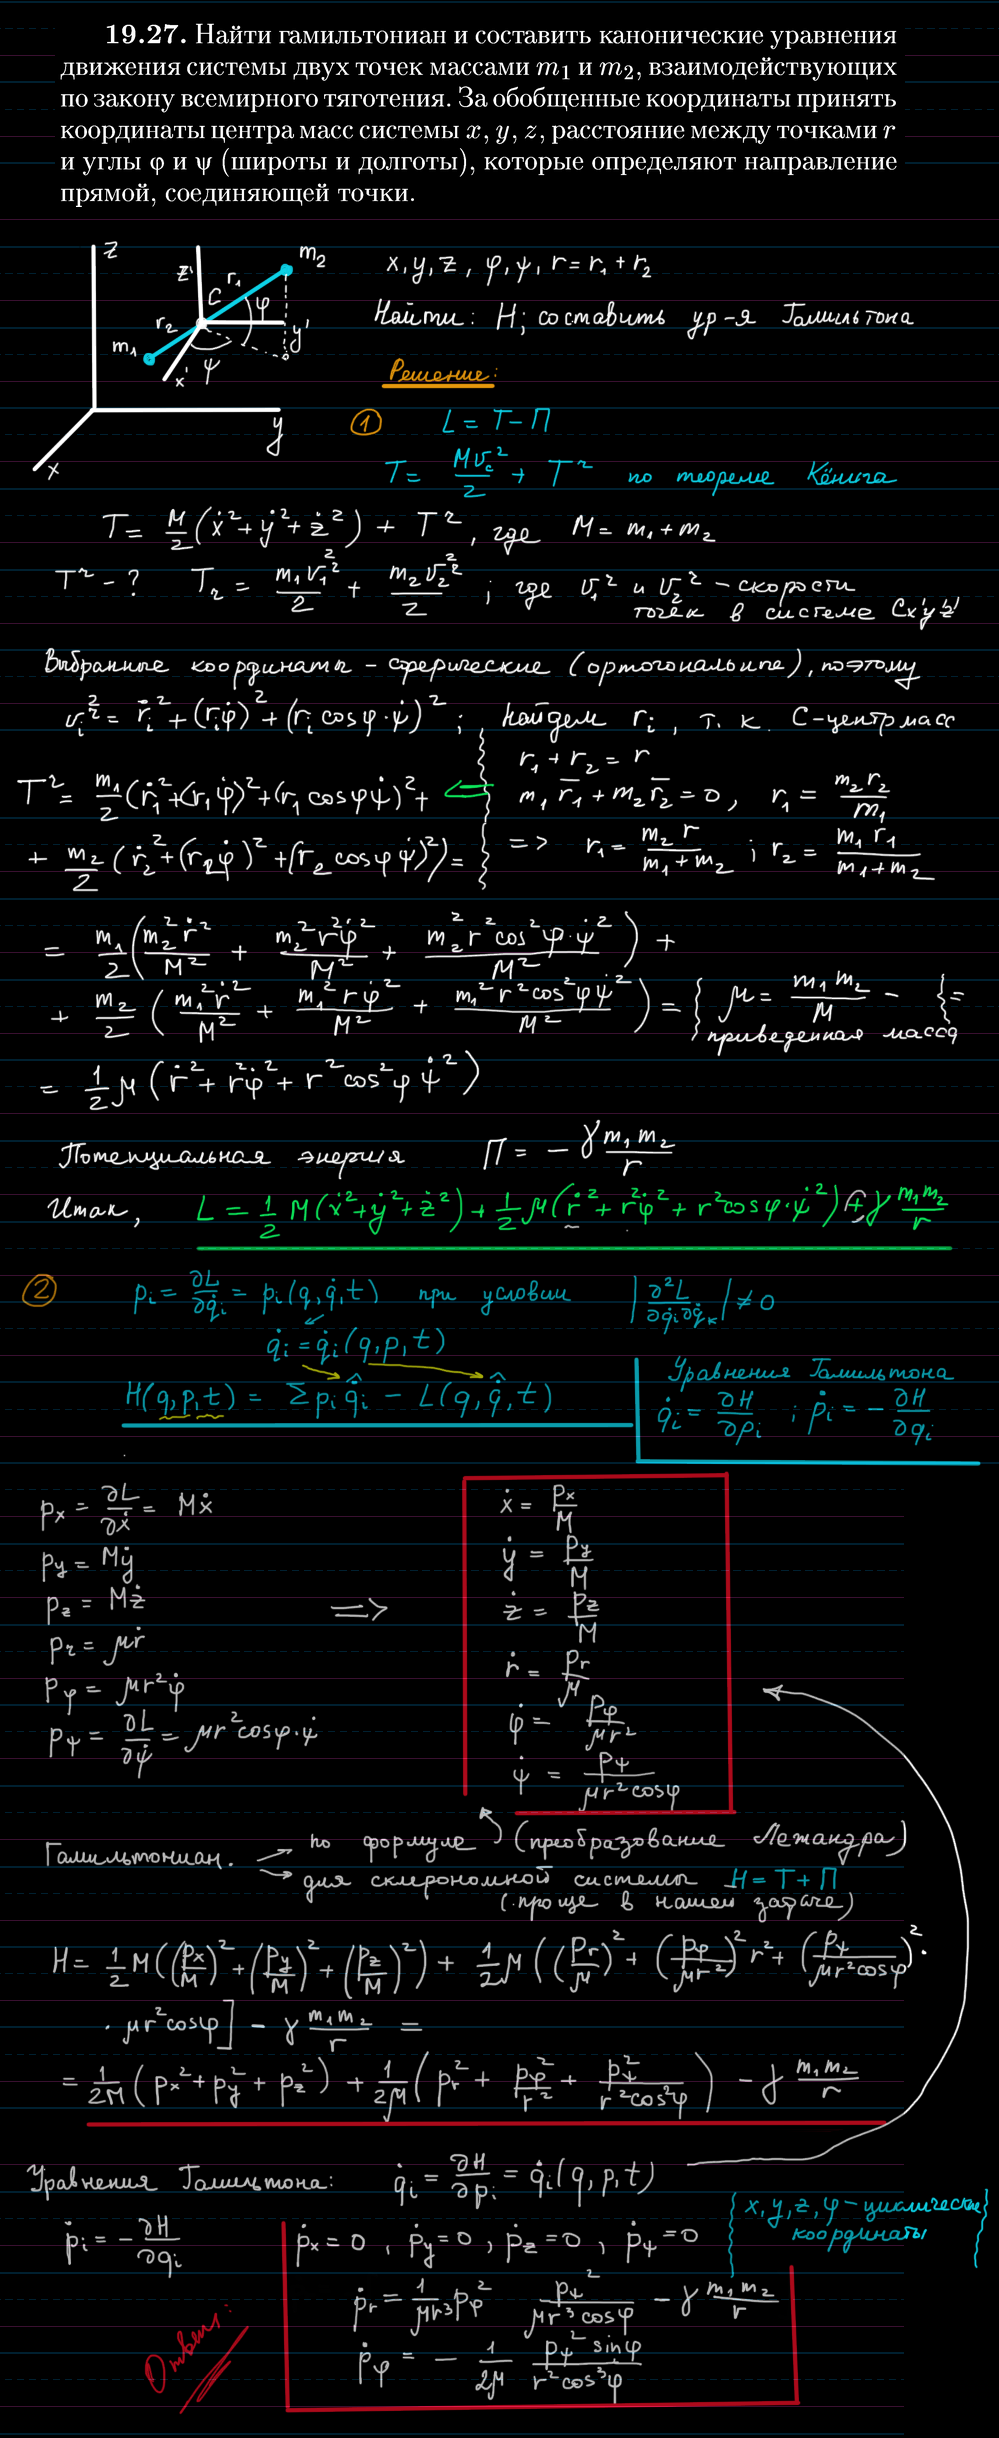 19.27. Найти гамильтониан и составить канонические уравнения
движения системы двух точек массами m₁ и m₂, взаимодействующих
по закону всемирного тяготения. За обобщенные координаты принять
координаты центра масс системы x, y, z, расстояние между точками r
и углы φ и ψ (широты и долготы), которые определяют направление
прямой, соединяющей точки.
z z' r₁ m₂ C φ r₂ m₁ y' x' ψ y x
x, y, z, φ, ψ, r = r₁ + r₂
Найти: H; составить ур-я Гамильтона
Решение:
① L = T − П
T = Mv_c²/2 + T^r по теореме Кёнига
T = M/2 (ẋ² + ẏ² + ż²) + T^r, где M = m₁ + m₂
T^r − ? T_r = m₁v₁²/2 + m₂v₂²/2 ; где v₁² и v₂² – скорости
точек в системе Cx'y'z'
Выбранные координаты – сферические (ортогональные), поэтому
v_i² = ṙ_i² + (r_i φ̇)² + (r_i cosφ·ψ̇)² ; найдем r_i, т. к. C-центр масс
r₁ + r₂ = r
T^r = m₁/2 (ṙ₁² + (r₁φ̇)² + (r₁ cosφ ψ̇)² + ⇐ m₁r̄₁ + m₂r̄₂ = 0, r₁ = m₂r₂/m₁
+ m₂/2 (ṙ₂² + (r₂φ̇)² + (r₂ cosφ ψ̇)²) = => r₁ = m₂r/(m₁+m₂) ; r₂ = m₁r₁/(m₁+m₂)
= m₁/2 (m₂²ṙ²/M² + m₂²r²φ̇²/M² + m₂²r²cos²φ·ψ̇²/M²) +
+ m₂/2 (m₁²ṙ²/M² + m₁²rφ̇²/M² + m₁²r²cos²φψ̇²/M²) = { μ = m₁m₂/M – } =
приведенная масса
= 1/2 μ (ṙ² + r²φ̇² + r²cos²φ ψ̇²)
Потенциальная энергия П = − γ m₁m₂/r
Итак, L = 1/2 M(ẋ² + ẏ² + ż²) + 1/2 μ(ṙ² + r²φ̇² + r²cosφ·ψ̇²) + γ m₁m₂/r
② p_i = ∂L/∂q̇_i = p_i(q, q̇, t) при условии |∂²L/∂q̇_i∂q̇_k| ≠ 0
q̇_i = q̇_i(q, p, t)
H(q, p, t) = Σ p_i q̇̂_i − L(q, q̇̂, t)
Уравнения Гамильтона
q̇_i = ∂H/∂p_i ; ṗ_i = − ∂H/∂q_i
p_x = ∂L/∂ẋ = Mẋ
p_y = Mẏ
p_z = Mż
p_r = μṙ
p_φ = μr²φ̇
p_ψ = ∂L/∂ψ̇ = μr²cosφ·ψ̇
=>
ẋ = p_x/M
ẏ = p_y/M
ż = p_z/M
ṙ = p_r/μ
φ̇ = p_φ/μr²
ψ̇ = p_ψ/μr²cosφ
Гамильтониан. → по формуле (преобразование Лежандра)
→ для склерономной системы H = T + П
(проще в нашей задаче)
H = 1/2 M((p_x/M)² + (p_y/M)² + (p_z/M)²) + 1/2 μ((p_r/μ)² + (p_φ/μr²)² r² + (p_ψ/μr²cosφ)² ·
· μr²cosφ] − γ m₁m₂/r =
= 1/2M (p_x² + p_y² + p_z²) + 1/2μ (p_r² + p_φ²/r² + p_ψ²/r²cos²φ) − γ m₁m₂/r
Уравнения Гамильтона: q̇_i = ∂H/∂p_i = q̇_i(q, p, t)
{ x, y, z, φ – циклические
координаты }
ṗ_i = − ∂H/∂q_i
ṗ_x = 0 , ṗ_y = 0 , ṗ_z = 0 , ṗ_ψ = 0
ṗ_r = 1/μr³ p_φ² p_ψ²/μr³cosφ − γ m₁m₂/r
ṗ_φ = − 1/2μ p_ψ² sinφ/r²cos³φ
Ответ: